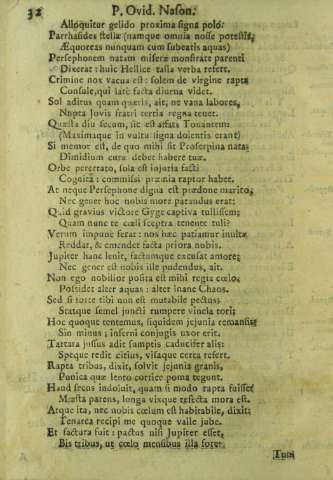 32 P. Ovid. Nason.
Alloquitur gelido proxima signa polo:
Parrhasides stellæ (namque omnia nosse potestis,
Æquoreas nunquam cum subeatis aquas)
Persephonem natam miseræ monstrate parenti
Dixerat: huic Hellice talia verba refert.
Crimine nox vacua est: solem de virgine rapta
Consule, qui late facta diurna videt.
Sol aditus quam quæris, ait, ne vana labores,
Nupta Jovis fratri tertia regna tenet.
Questa diu secum, sic est affata Tonantem:
(Maximaque in vultu signa dolentis erant)
Si memor es, de quo mihi sit Proserpina nata;
Dimidium curæ debet habere tuæ.
Orbe pererrato, sola est injuria facti
Cognita: commissi præmia raptor habet.
At neque Persephone digna est prædone marito;
Nec gener hoc nobis more parandus erat:
Quid gravius victore Gyge captiva tulissem;
Quam nunc te cœli sceptra tenente tuli?
Verum impune ferat: nos hæc patiamur inultæ
Reddat, & emendet facta priora nobis.
Jupiter hanc lenit, factumque excusat amore;
Nec gener est nobis ille pudendus, ait.
Non ego nobilior posita est mihi regia cœlo,
Possidet alter aquas: alter inane Chaos.
Sed si forte tibi non est mutabile pectus;
Statque semel juncti rumpere vincla tori;
Hoc quoque tentemus, siquidem jejunia remansit;
Sin minus; inferni conjugis uxor erit.
Tartara jussus adit sumptis caducifer alis:
Speque redit citius, visaque certa refert.
Rapta tribus, dixit, solvit jejunia granis,
Punica quæ lento cortice poma tegunt.
Haud secus indoluit, quam si modo rapta fuisset
Mæsta parens, longa vixque refecta mora est.
Atque ita, nec nobis cœlum est habitabile, dixit;
Tenarea recipi me quoque valle jube.
Et factura fuit: pactus nisi Jupiter esset,
Bis tribus, ut cœlo mensibus illa foret.
Tum